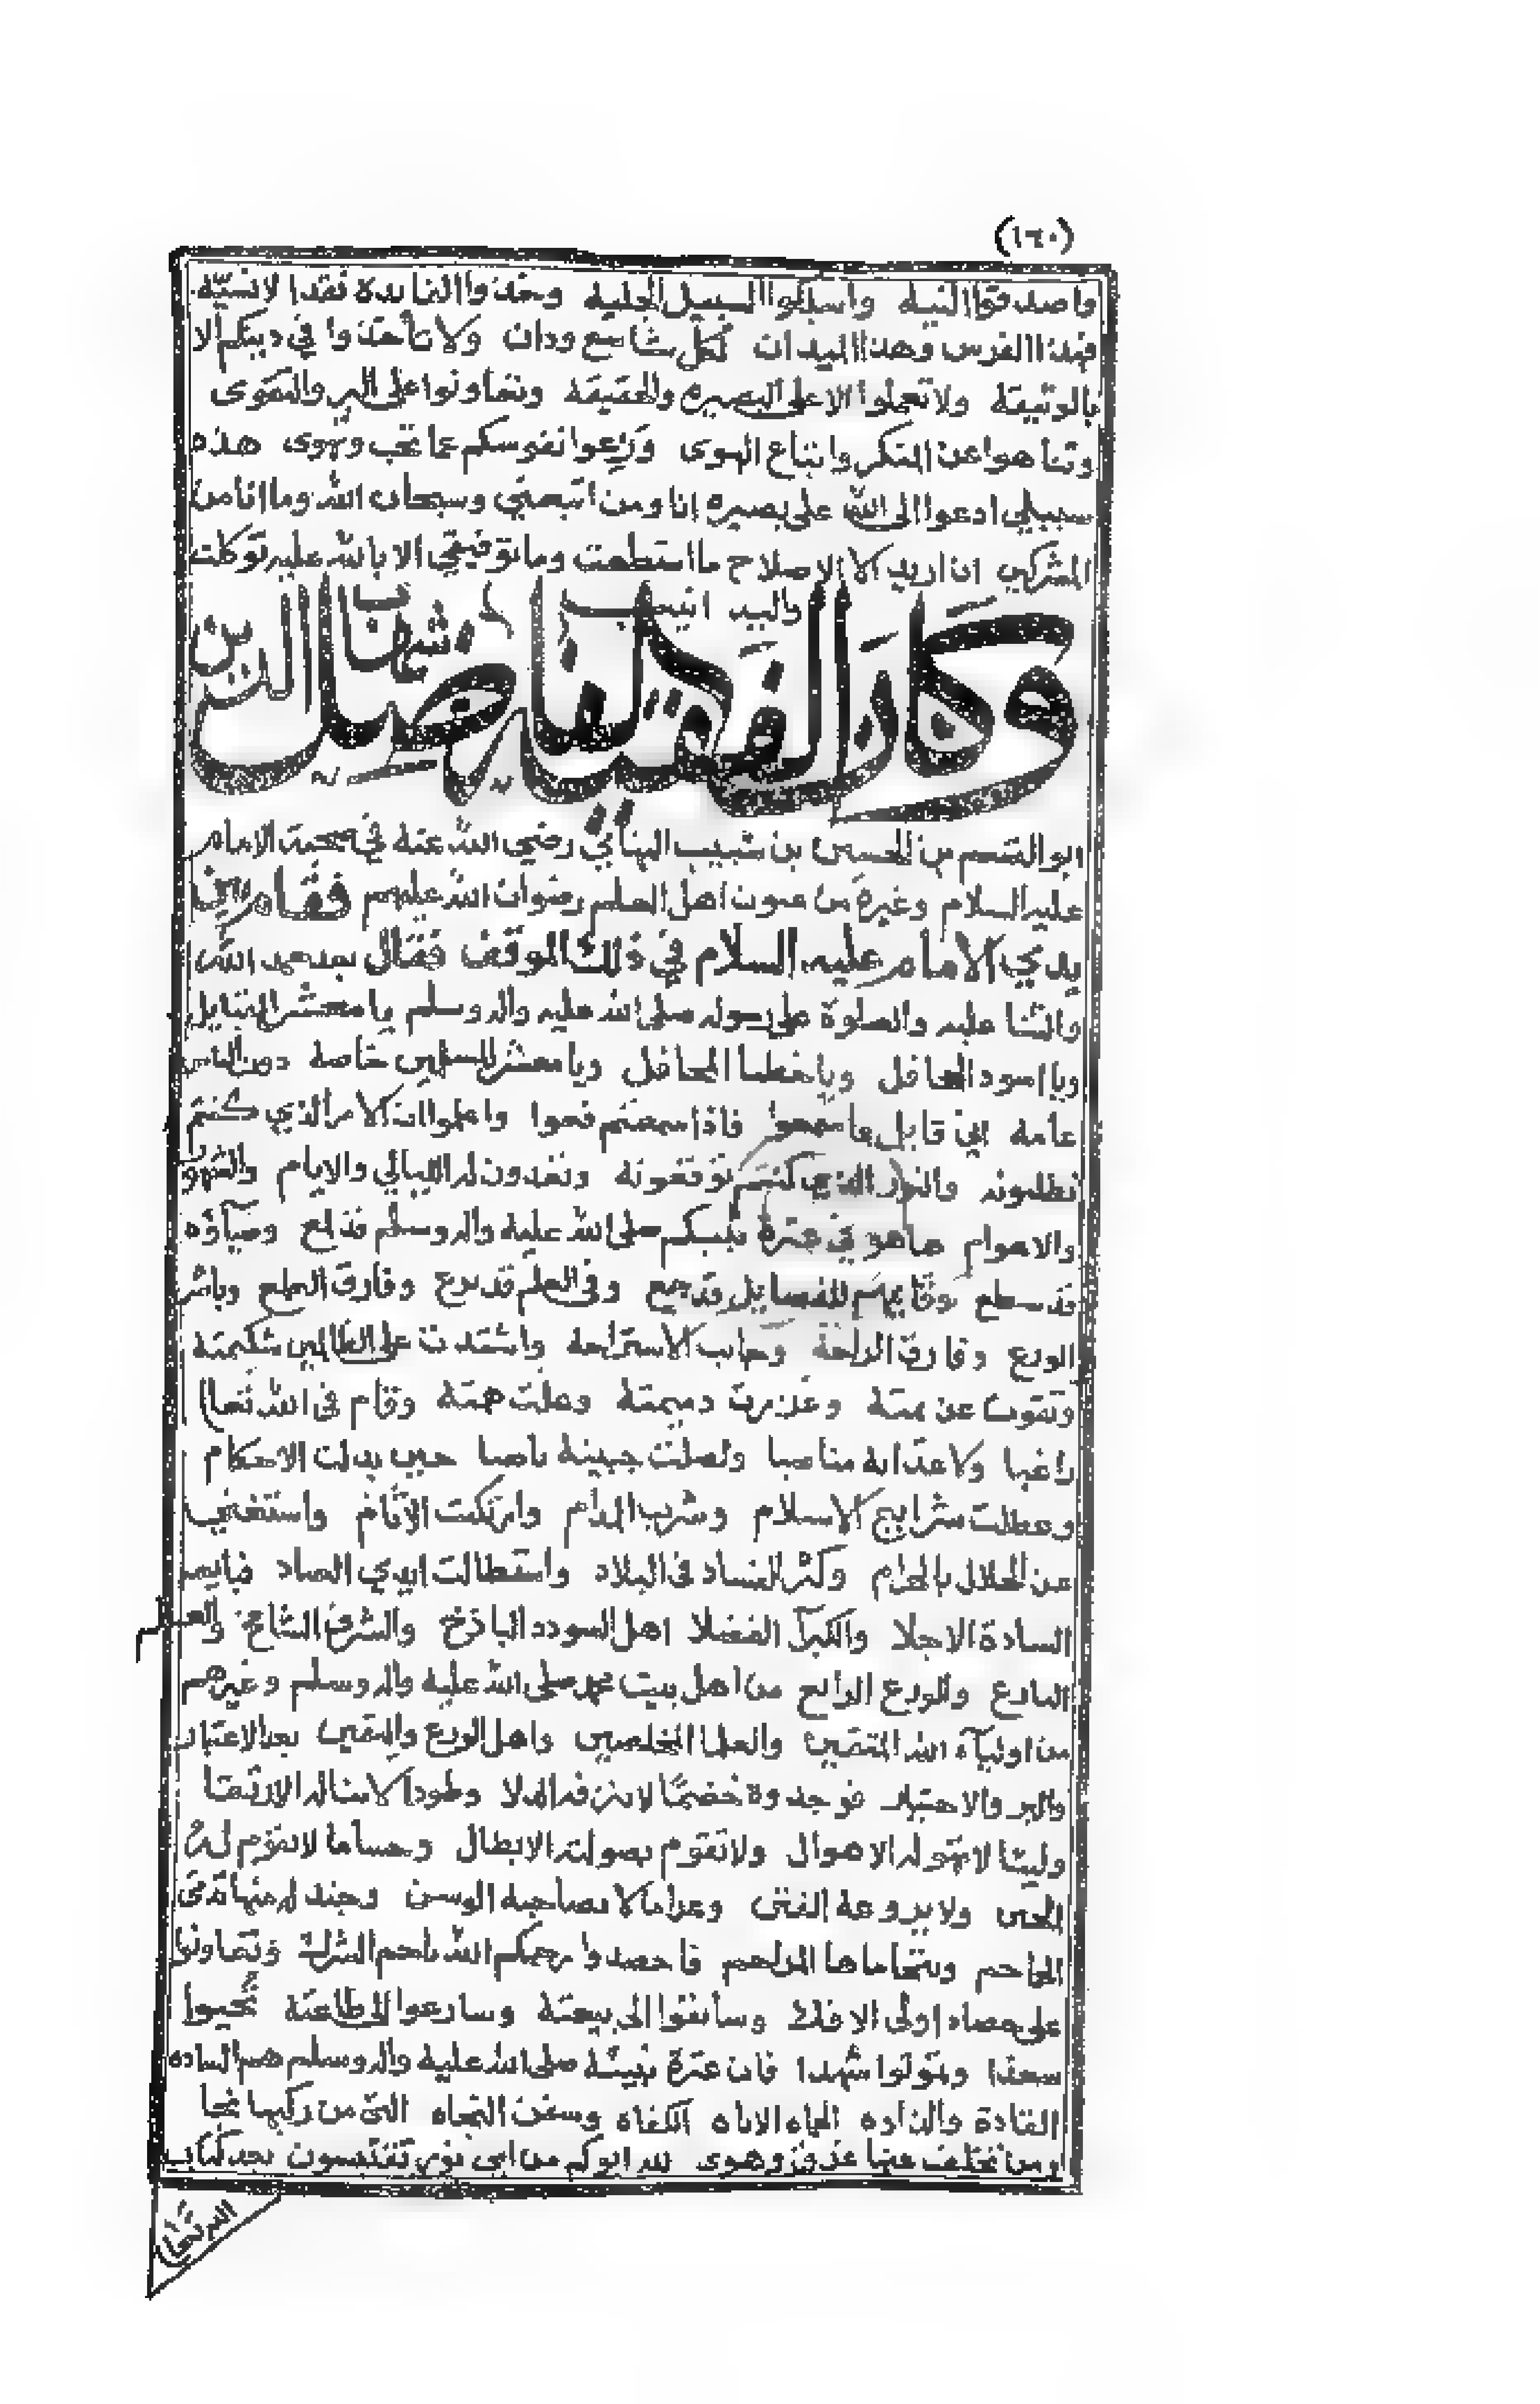 (١٦٠)
واصدقوا النية واسلكوا السبيل الجلية وخذوا الفايده نقدا لا نسيّة
فهذا الفرس وهذا الميدان لكل شاسع ودان ولا تأخذوا في دينكم الا
بالوثيقة ولا تعملوا الا على البصيره والحقيقة وتعاونوا على البر والتقوى
وتناهوا عن المنكر واتباع الهوى وَزعوا نفوسكم عما تحب وتهوى هذه
سبيلي ادعوا الى الله على بصيره انا ومن اتبعني وسبحان الله وما انا من
المشركين ان اريد الا الاصلاح ما استطعت وما توفيقي الا بالله عليه توكلت
واليه انيب
وكان الفقيه الفاضل شهاب الدين
ابو القسم بن الحسين بن شبيب التهامي رضي الله عنه في صحبة الامام
عليه السلام وغيره من عيون اهل العلم رضوان الله عليهم فقام بين
يدي الامام عليه السلام في ذلك الموقف فقال بعد حمد الله
والثنا عليه والصلوة على رسوله صلى الله عليه واله وسلم يا معشر القبايل
ويا اسود الجحافل ويا خطبا المحافل ويا معشر المسلمين خاصة دون الناس
عامة اني قايل فاسمعوا فاذا سمعتم فعوا واعلموا ان الامر الذي كنتم
تطلبونه والنور الذي كنتم توقعونه وتعدون له الليالي والايام والشهور
والاعوام هاهو في عترة نبيكم صلى الله عليه واله وسلم قد لمع وضيآؤه
قد سطع وقايمهم للفضايل قد جمع وفي العلم قد برع وفارق الطمع وباشر
الورع وفارق الراحة وجانب الاستراحة واشتدت على الظالمين شكيمته
وعزرت ديمته وعلت همته وقام في الله تعالى
راغبا ولاعدائه مناصبا حين بدلت الاحكام
وعطلت شرايع الاسلام وشرب المدام وارتكبت الاثام واستغني
عن الحلال بالحرام وكثر الفساد في البلاد واستطالت ايدي
السادة الاجلا والكبرآ الفضلا اهل السودد الباذخ والشرف الشامخ والعلم
البارع والورع الرايع من اهل بيت محمد صلى الله عليه واله وسلم وغيرهم
من اوليآء الله المتقين والعلما المخلصين واهل الورع واليقين بعد الاعتبار
والبر والاختبار فوجدوه خضمًّا لا تنزفه الدلا وطودا لا يناله الارتقا
وليثا لا تهوله الاهوال ولا تقوم بصولته الابطال وحساما لا تقوم له
ولا يروعه الفتى وعزاما لا تصاحبه الوسن
وتتحاماها المراحم فاحصدوا رحمكم الله ناجم الشرك وتعاونوا
على اولى الافك وسابقوا الى بيعته وسارعوا الى طاعته تحيوا
سعدا وتموتوا شهدا فان عترة نبيئه صلى الله عليه واله وسلم هم الساده
القادة والذاده الحماه الاباه الكفاه وسفن النجاه التي من ركبها نجا
ومن تخلف عنها غرق وهوى لله ابوكم من اي نور تقتبسون بعد كتاب
الله تعالى